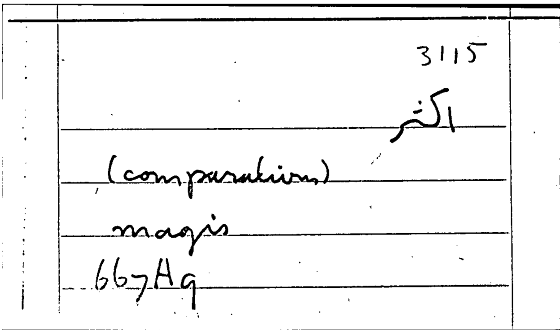 3115
اكثر
(comparativum)
magis
667 Aq